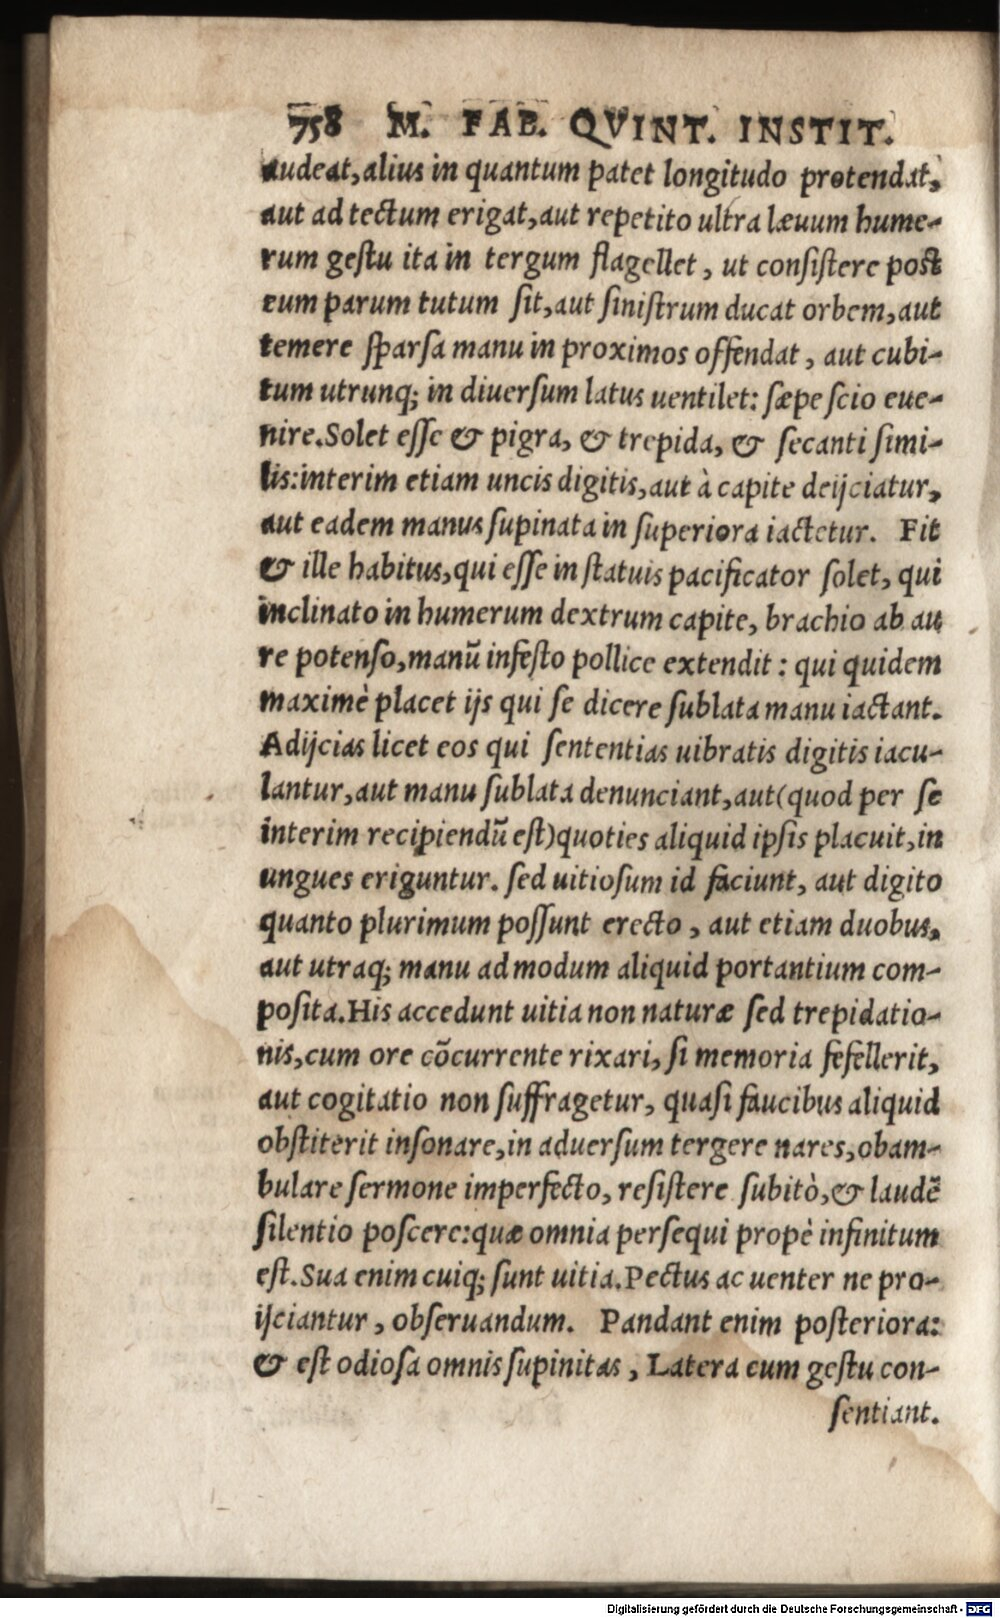 758 M. FAB. QVINT. INSTIT.
audeat, alius in quantum patet longitudo protendat,
aut ad tectum erigat, aut repetito ultra læuum hume-
rum gestu ita in tergum flagellet, ut consistere post
eum parum tutum sit, aut sinistrum ducat orbem, aut
temere sparsa manu in proximos offendat, aut cubi-
tum utrunq; in diuersum latus uentilet: sæpe scio eue-
nire. Solet esse & pigra, & trepida, & secanti simi-
lis: interim etiam uncis digitis, aut à capite deijciatur,
aut eadem manus supinata in superiora iactetur. Fit
& ille habitus, qui esse in statuis pacificator solet, qui
inclinato in humerum dextrum capite, brachio ab au
re potenso, manũ infesto pollice extendit: qui quidem
maximè placet ijs qui se dicere sublata manu iactant.
Adijcias licet eos qui sententias uibratis digitis iacu-
lantur, aut manu sublata denunciant, aut (quod per se
interim recipiendũ est) quoties aliquid ipsis placuit, in
ungues eriguntur. sed uitiosum id faciunt, aut digito
quanto plurimum possunt erecto, aut etiam duobus,
aut utraq; manu ad modum aliquid portantium com-
posita. His accedunt uitia non naturæ sed trepidatio-
nis, cum ore cõcurrente rixari, si memoria fefellerit,
aut cogitatio non suffragetur, quasi faucibus aliquid
obstiterit insonare, in aduersum tergere nares, obam-
bulare sermone imperfecto, resistere subitò, & laudẽ
silentio poscere: quæ omnia persequi propè infinitum
est. Sua enim cuiq; sunt uitia. Pectus ac uenter ne pro-
ijciantur, obseruandum. Pandant enim posteriora:
& est odiosa omnis supinitas, Latera cum gestu con-
sentiant.
Digitalisierung gefördert durch die Deutsche Forschungsgemeinschaft - DFG